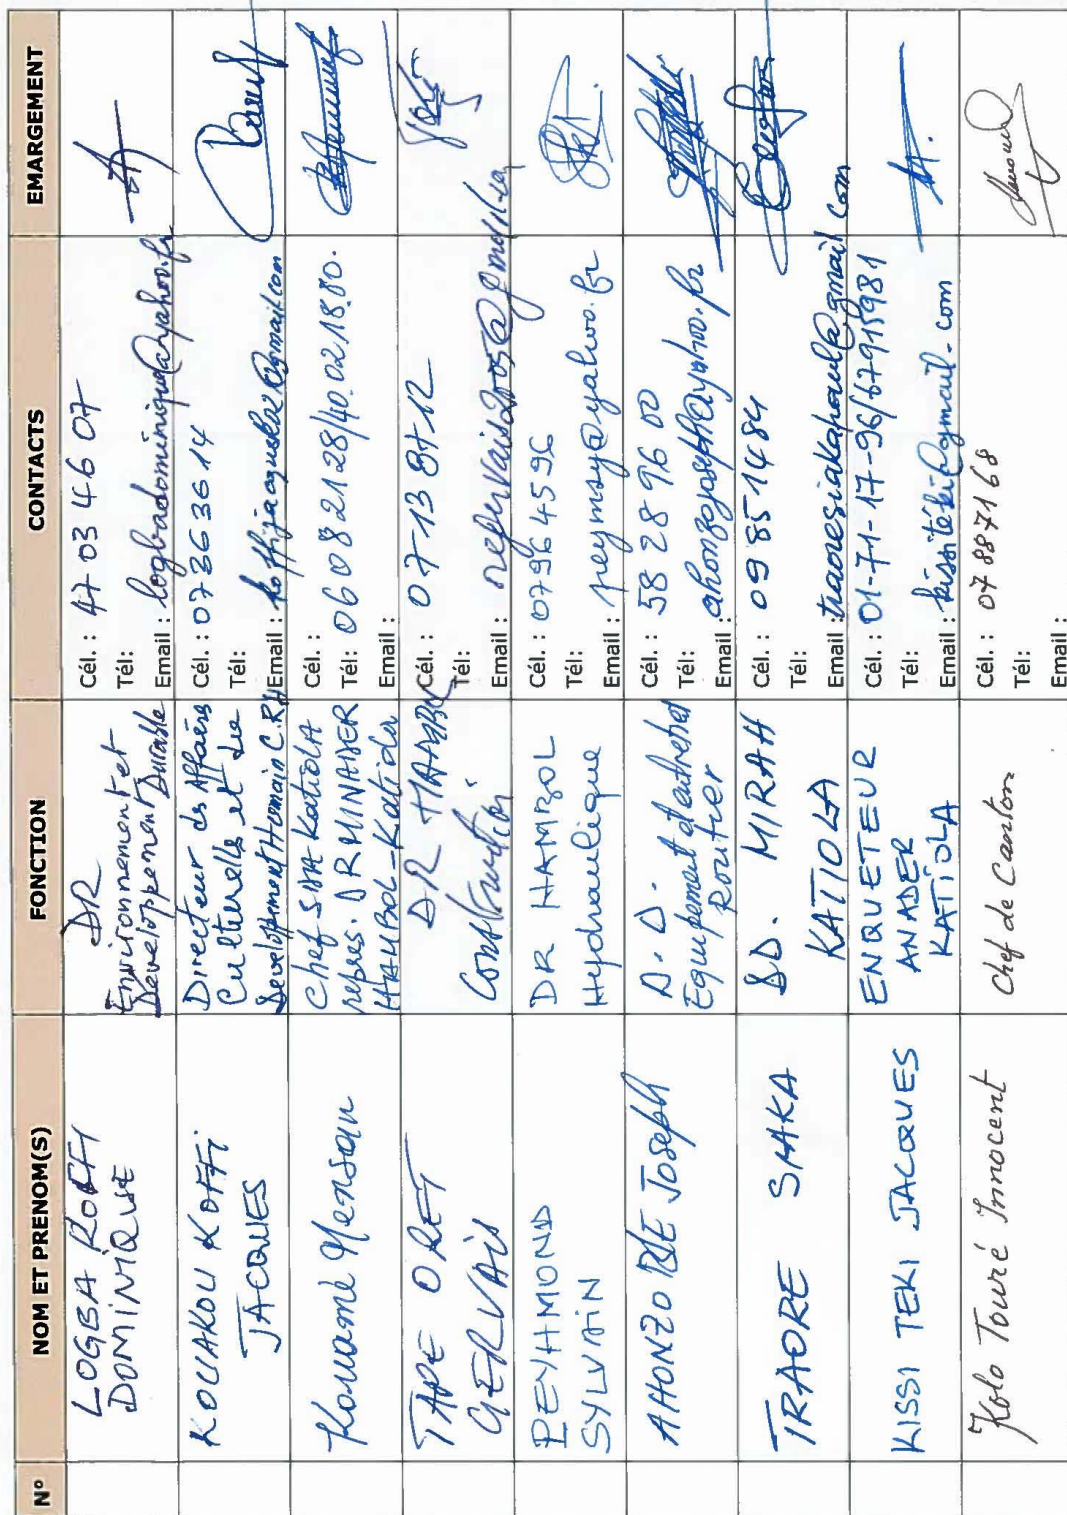 N° NOM ET PRENOM(S) FONCTION CONTACTS EMARGEMENT
LOGBA KOFFI
DOMINIQUE
DR
Environnement et
Développement Durable
Cél. : 47 03 46 07
Tél:
Email : logbadominique@yahoo.fr
KOUAKOU KOFFI
JACQUES
Directeur des Affaires
Culturelles et du
Developpement Humain C.RH
Cél. : 07363614
Tél:
Email : koffijacquesko2@gmail.com
Kouamé Mensan
Chef SIRA Katiola
repres. DR MINADER
HAMBOL-Katiola
Cél. :
Tél: 06082128/40.02.18.80.
Email :
TAPE ORET
GERVAIS
DR HAMBOL
Construction
Cél. : 07138412
Tél:
Email :
PEYHMOND
SYLVAIN
DR HAMBOL
Hydraulique
Cél. : 07964596
Tél:
Email : peymsy@yahoo.fr
AHONZO Joseph
D.D.
Equipement d'entretien
Routier
Cél. : 58 28 96 00
Tél:
Email : ahonzojoseph@yahoo.fr
TRAORE SIAKA
DD. MIRAH
KATIOLA
Cél. : 09851484
Tél:
Email : traoresiakapaul@gmail com
KISSI TEKI JACQUES
ENQUETEUR
ANADER
KATIOLA
Cél. : 01-71-17-96/67915981
Tél:
Email : kissitéki@gmail.com
Kolo Touré Innocent
Chef de Canton
Cél. : 07887168
Tél:
Email :